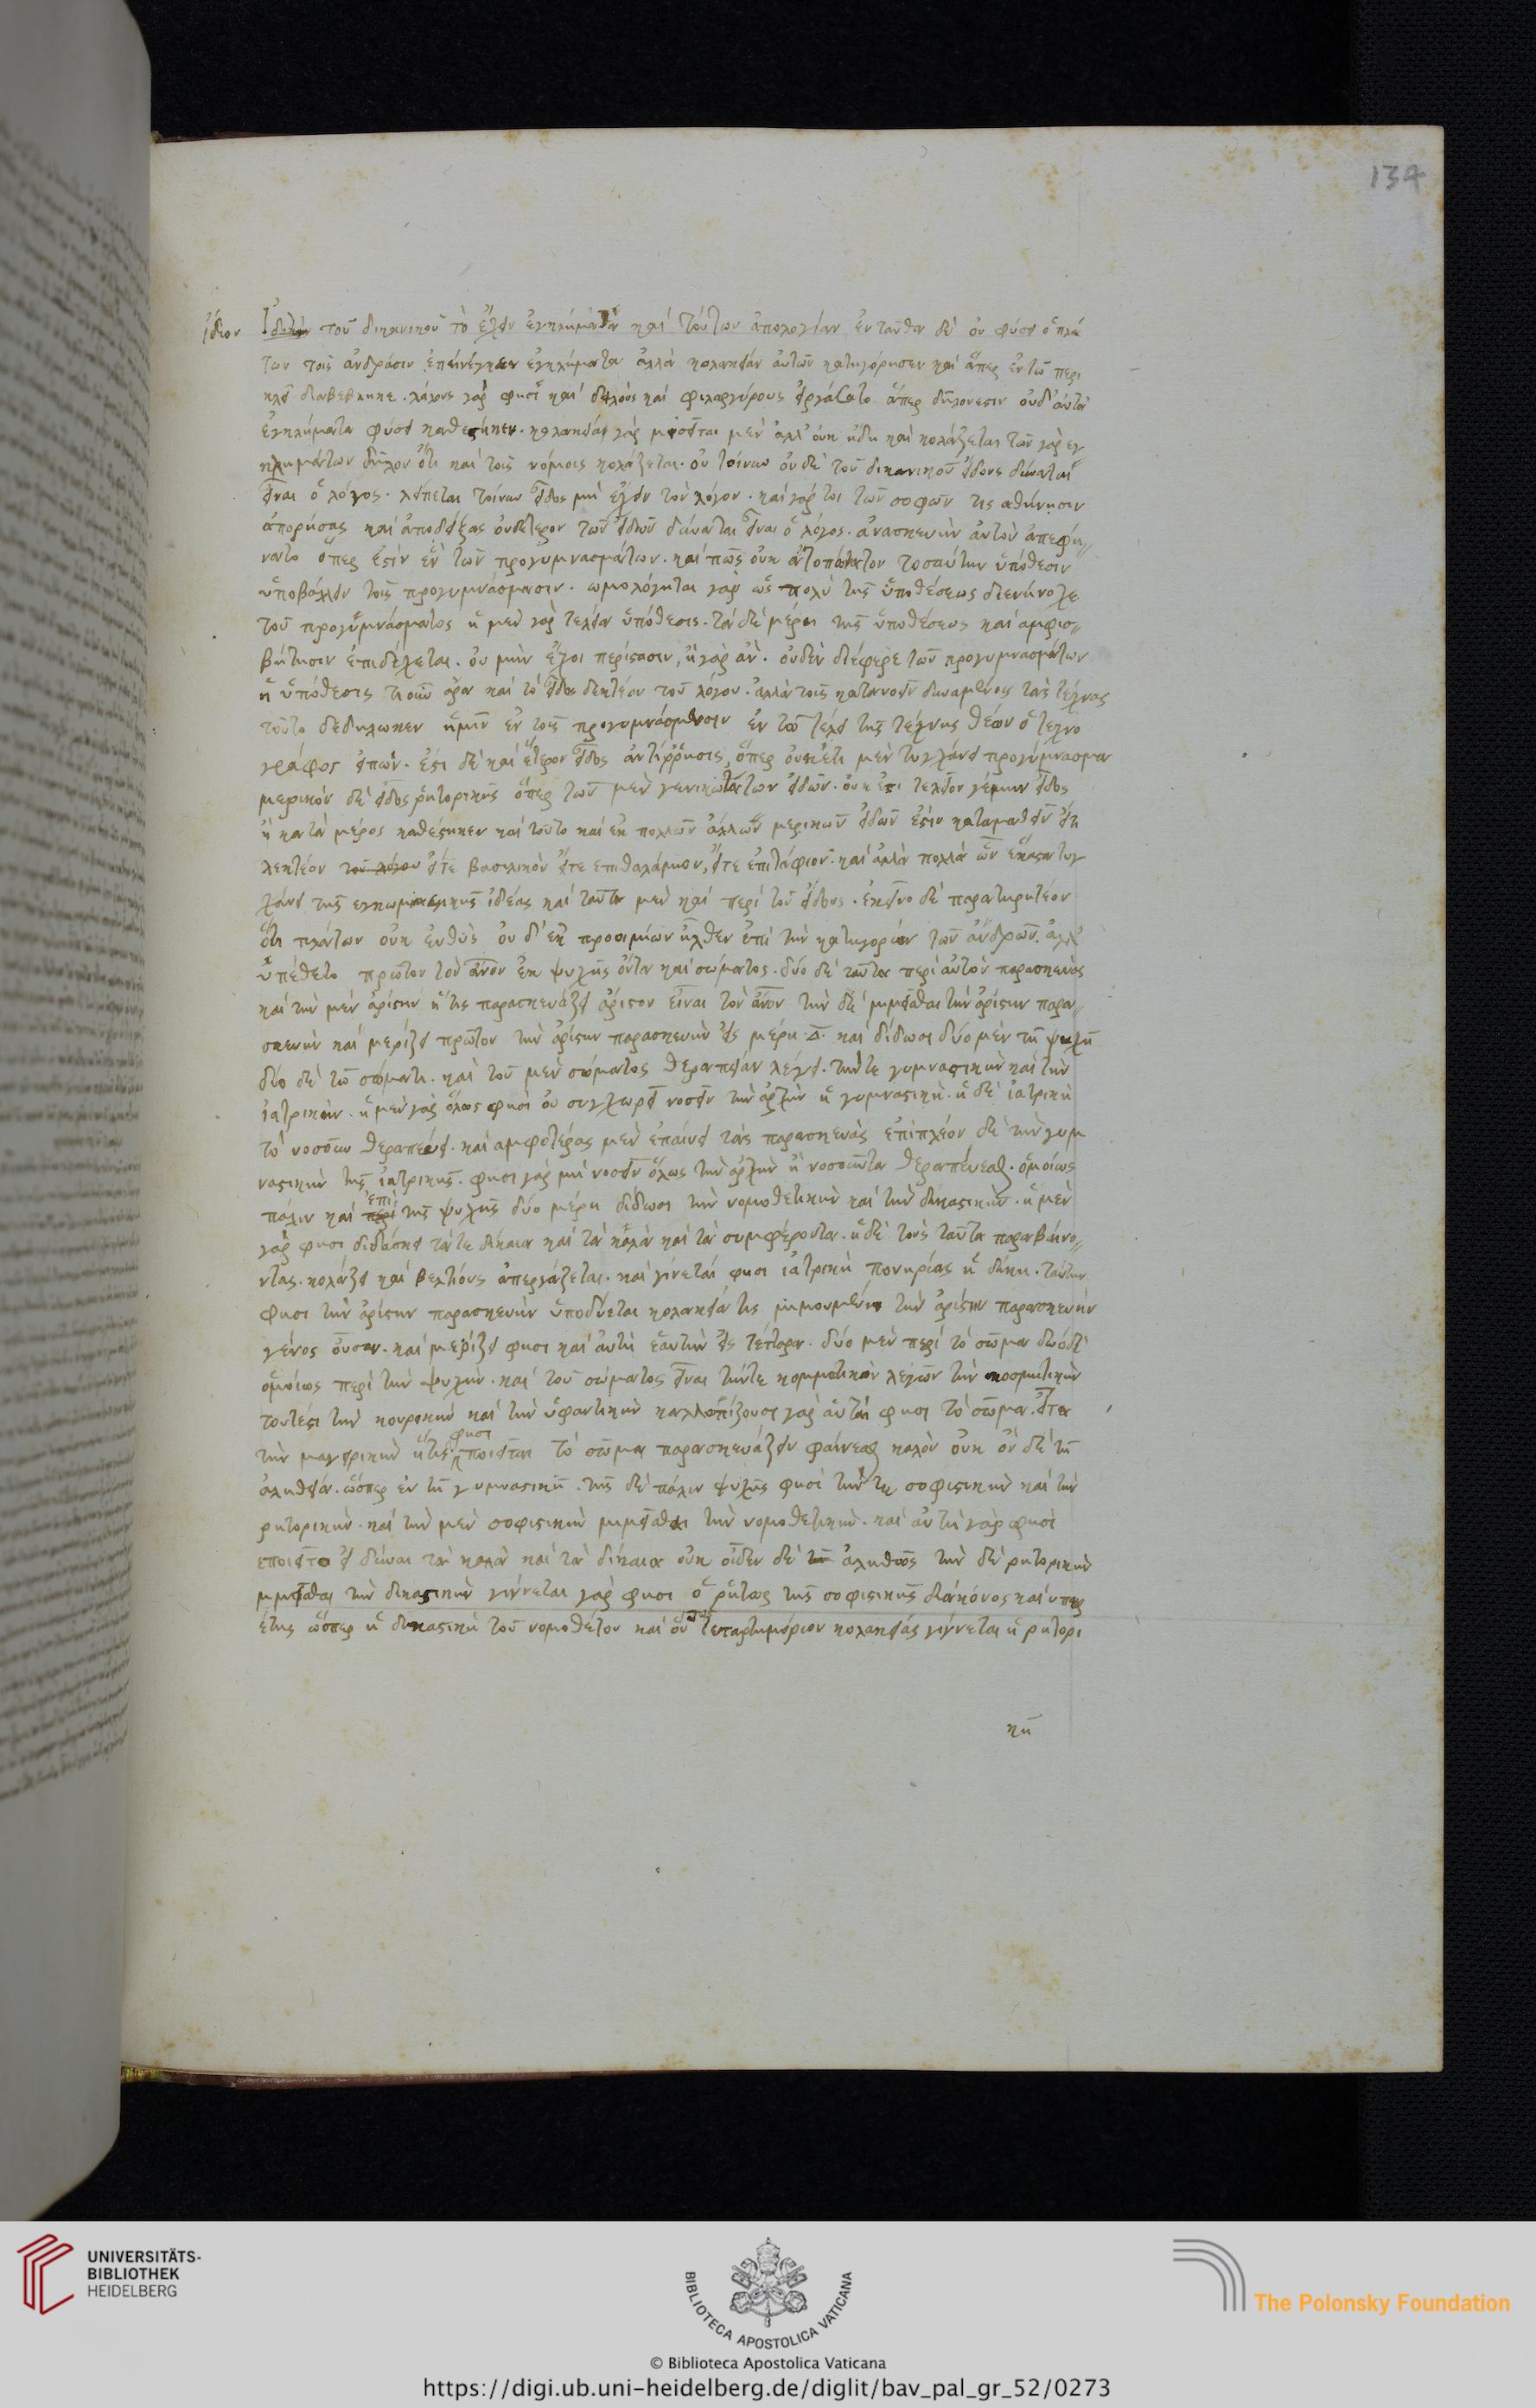 134
ἴδιον
ἴδιον τοῦ δικανικοῦ τὸ ἔχειν ἐγκλήματα καὶ τούτων ἀπολογίαν ἐνταῦθα δὲ οὐ φύσει ὁ πλά
των τοῖς ἀνδράσιν ἐπανέγκεν ἐγκλήματα ἀλλὰ κολακείαν αὐτῶν κατηγόρησεν καὶ ἅπερ ἐν τῶ περι
κλεῖ διαβέβληκε. λάλους γάρ φησι καὶ δειλοὺς καὶ φιλαργύρους εἰργάσατο ἅπερ δῆλον ἐστιν οὐδ' αὐτὰ
ἐγκλήματα φύσει καθέστηκεν. κολακεία γὰρ μισεῖται μὲν ἀλλ' οὐκ ἤδη καὶ κολάζεται τῶν γὰρ εγ
κλημάτων δῆλον ὅτι καὶ τοῖς νόμοις κολάζεται. οὐ τοίνυν οὐδὲ τοῦ δικανικοῦ εἴδους δύναται
εἶναι ὁ λόγος. λείπεται τοίνυν εἶδος μὴ ἔχειν τὸν λόγον. καὶ γάρ τοι τῶν σοφῶν τις αθήνησιν
ἀπορήσας καὶ ἀποδείξας οὐδέτερον τῶν εἰδῶν δύναται εἶναι ὁ λόγος. ἀνασκευὴν αὐτὸν ἀπεφή
νατο ὅπερ ἐστὶν ἓν τῶν προγυμνασμάτων. καὶ πῶς οὐκ ἀτοπώτατον τοσαύτην ὑπόθεσιν
ὑποβάλλειν τοῖς προγυμνάσμασιν. ὡμολόγηται γὰρ ὡς πολὺ τῆς ὑποθέσεως διενήνοχε
τοῦ προγυμνάσματος ἡ μὲν γὰρ τελεία ὑπόθεσις. τὰ δὲ μέρει τῆς ὑποθέσεως καὶ ἀμφισ
βήτησιν ἐπιδέχεται. οὐ μὴν ἔχοι περίστασιν, ἢ γὰρ ἂν. οὐδὲν διέφερε τῶν προγυμνασμάτων
ἡ ὑπόθεσις τι οὖν ἄρα καὶ τὸ εἶδος λεκτέον τοῦ λόγου. ἀλλὰ τοῖς κατανοεῖν δυναμένοις τὰς τέχνας
τοῦτο δεδήλωκεν ἡμῖν ἐν τοῖς προγυμνάσμασιν ἐν τῶ τέλει τῆς τέχνης θέων ὁ τεχνο
γράφος εἰπών. ἔστι δὲ καὶ ἕτερον εἶδος ἀντίρρησις, ὅπερ οὐκέτι μὲν τυγχάνει προγύμνασμα
μερικὸν δὲ εἶδος ῥητορικῆς ὅπερ τῶν μὲν γενικωτάτων εἰδῶν. οὐκ ἔστι τελεῖον γέμην εἶδος
ἢ κατὰ μέρος καθέστηκεν καὶ τοῦτο καὶ ἐκ πολλῶν ἄλλων μερικῶν εἰδῶν ἐστὶν καταμαθεῖν ὅτι
λεκτέον τοῦ λόγου εἴτε βασιλικὸν εἴτε επιθαλάμιον, εἴτε ἐπιτάφιον. καὶ ἀλλὰ πολλὰ ὧν ἕκαστα τυγ
χάνει τῆς εγκωμιαστικῆς ἰδέας καὶ ταῦτα μὲν καὶ περὶ τοῦ εἴδους. ἐκεῖνο δὲ παρατηρητέον
ὅτι πλάτων οὐκ ἐυθὺς οὐ δ' ἐκ προοιμίων ἦλθεν ἐπὶ τὴν κατηγορίαν τῶν ἀνδρῶν. ἀλλ'
ὑπέθετο πρῶτον τὸν ἄνον ἐκ ψυχῆς ὄντα καὶ σώματος. δύο δὲ ταῦτα περὶ αὐτὸν παρασκευὰς
καὶ τὴν μὲν ἀρίστην ἥτις παρασκευάζει ἄριστον εἶναι τὸν ἄνον τὴν δὲ μιμεῖσθαι τὴν ἀρίστην παρα
σκευὴν καὶ μερίζει πρῶτον τὴν ἀρίστην παρασκευὴν εἰς μέρη Δ. καὶ δίδωσι δύο μὲν τῆ ψυχῆ
δύο δὲ τῶ σώματι. καὶ τοῦ μὲν σώματος θεραπείαν λέγει. τήν τε γυμναστικὴν καὶ τὴν
ἰατρικὴν. ἡ μὲν γὰρ ὅλως φησὶ οὐ συγχωρεῖ νοσεῖν τὴν ἀρχὴν ἡ γυμναστική. ἡ δὲ ἰατρικὴ
τὸ νοσοῦν θεραπεύει. καὶ αμφοτέρας μὲν ἐπαινεῖ τὰς παρασκευὰς ἐπιπλέον δὲ τὴν γυμ
ναστικὴν τῆς ἰατρικῆς. φησι γὰρ μὴ νοσεῖν ὅλως τὴν ἀρχὴν ἢ νοσοῦντα θεραπεύεσθαι. ὁμοίως
πάλιν καὶ περὶ ἐπὶ τῆς ψυχῆς δύο μέρη δίδωσι τὴν νομοθετικὴν καὶ τὴν δικαστικὴν. ἡ μὲν
γάρ φησι διδάσκει τάτε δίκαια καὶ τὰ καλὰ καὶ τὰ συμφέροντα. ἡ δὲ τοὺς ταῦτα παραβαίνο
ντας. κολάζει καὶ βελτίους ἀπεργάζεται. καὶ γίνεταί φησι ἰατρικὴ πονηρίας ἡ δίκη. ταύτην
φησι τὴν ἀρίστην παρασκευὴν ὑποδύεται κολακεία τις μιμουμένη τὴν ἀρίστην παρασκευὴν
γένος οὖσαν. καὶ μερίζει φησι καὶ αὐτὴ ἑαυτὴν εἰς τέτταρα. δύο μὲν περὶ τὸ σῶμα δύο δὲ
ὁμοίως περὶ τὴν ψυχὴν. καὶ τοῦ σώματος εἶναι τήν τε κομμωτικὴν λέγων τὴν κοσμητικὴν
τουτέστι τὴν κουρικὴν καὶ τὴν ὑφαντικὴν καλλωπίζουσι γὰρ αὗται φησι τὸ σῶμα. εἶτα
τὴν μαγειρικὴν ἥτις φησι ποιεῖται τὸ σῶμα παρασκευάζειν φαίνεσθαι καλὸν οὐκ ὂν δὲ τῆ
ἀληθεία. ὥσπερ ἐν τῆ γυμναστικῆ. τῆς δὲ πάλιν ψυχῆς φησὶ τήν τε σοφιστικὴν καὶ τὴν
ρητορικὴν. καὶ τὴν μὲν σοφιστικὴν μιμεῖσθαι τὴν νομοθετικὴν. καὶ αὐτὴ γὰρ φησὶ
εποιεῖτο εἰδέναι τὰ καλὰ καὶ τὰ δίκαια οὐκ οἶδεν δὲ ἀληθῶς τὴν δὲ ρητορικὴν
μιμεῖσθαι τὴν δικαστικὴν γίγνεται γὰρ φησι ὁ ῥήτωρ τῆς σοφιστικῆς διάκονος καὶ υπηρ
έτης ὥσπερ ἡ δικαστικὴ τοῦ νομοθέτου καὶ οὕτω τεταρτημόριον κολακείας γίγνεται ἡ ρητορι
κὴ
UNIVERSITÄTS-
BIBLIOTHEK
HEIDELBERG
BIBLIOTECA APOSTOLICA VATICANA
The Polonsky Foundation
© Biblioteca Apostolica Vaticana
https://digi.ub.uni-heidelberg.de/diglit/bav_pal_gr_52/0273